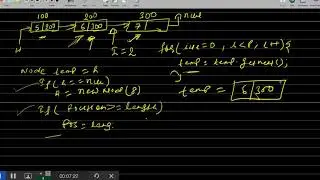 100 200 300 null
5|200 6|300 7|
h i=2 for(i=0, i<p, i++){
Node temp = h temp = temp.getnext();
if(h==null) }
h = new Node(p) temp = 6|300
if( position >= length)
pos = leng.
00:07:22